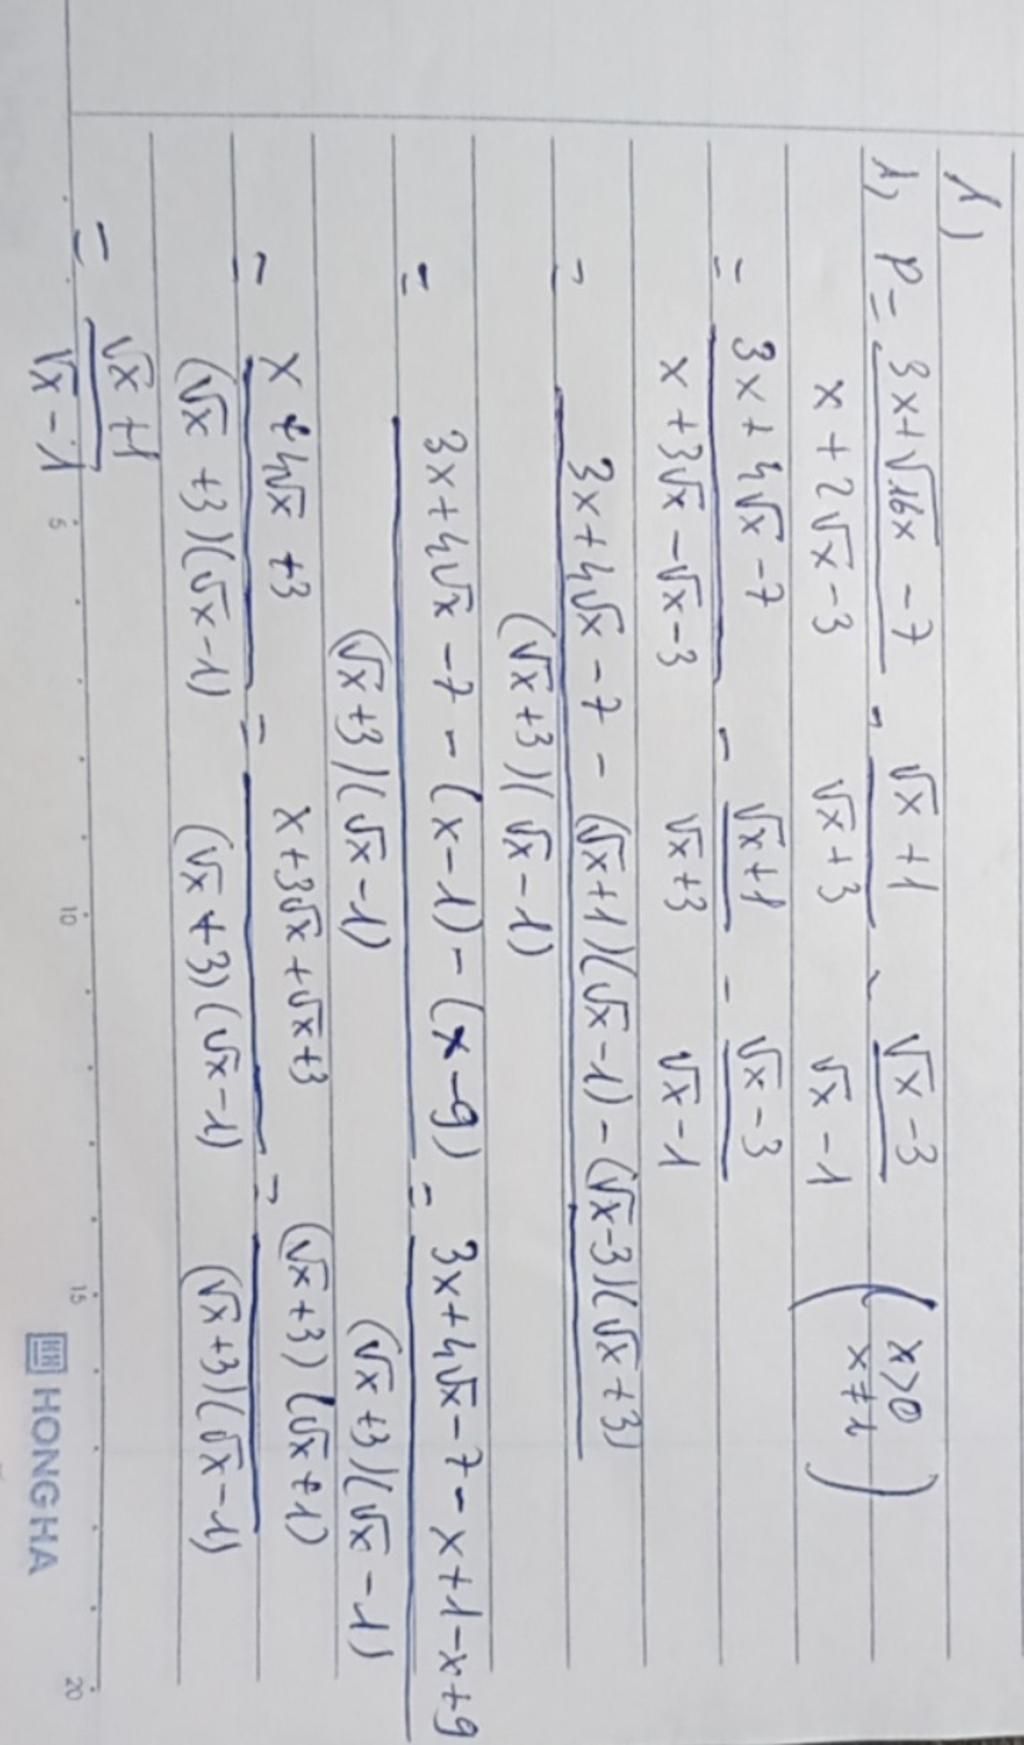 1)
1) P = (3x+√16x - 7)/(x + 2√x - 3) - (√x + 1)/(√x + 3) - (√x - 3)/(√x - 1) (x>0 x≠1)
= (3x + 4√x - 7)/(x + 3√x - √x - 3) - (√x+1)/(√x+3) - (√x - 3)/(√x - 1)
= (3x+4√x - 7 - (√x+1)(√x-1) - (√x-3)(√x+3))/((√x+3)(√x-1))
= (3x+4√x - 7 - (x-1) - (x-9))/((√x+3)(√x-1)) = (3x+4√x - 7 - x+1-x+9)/((√x+3)(√x-1))
= (x + 4√x + 3)/((√x +3)(√x-1)) = (x+3√x+√x+3)/((√x+3)(√x-1)) = ((√x+3)(√x+1))/((√x+3)(√x-1))
= (√x +1)/(√x - 1)
5 10 15 20
HONG HA